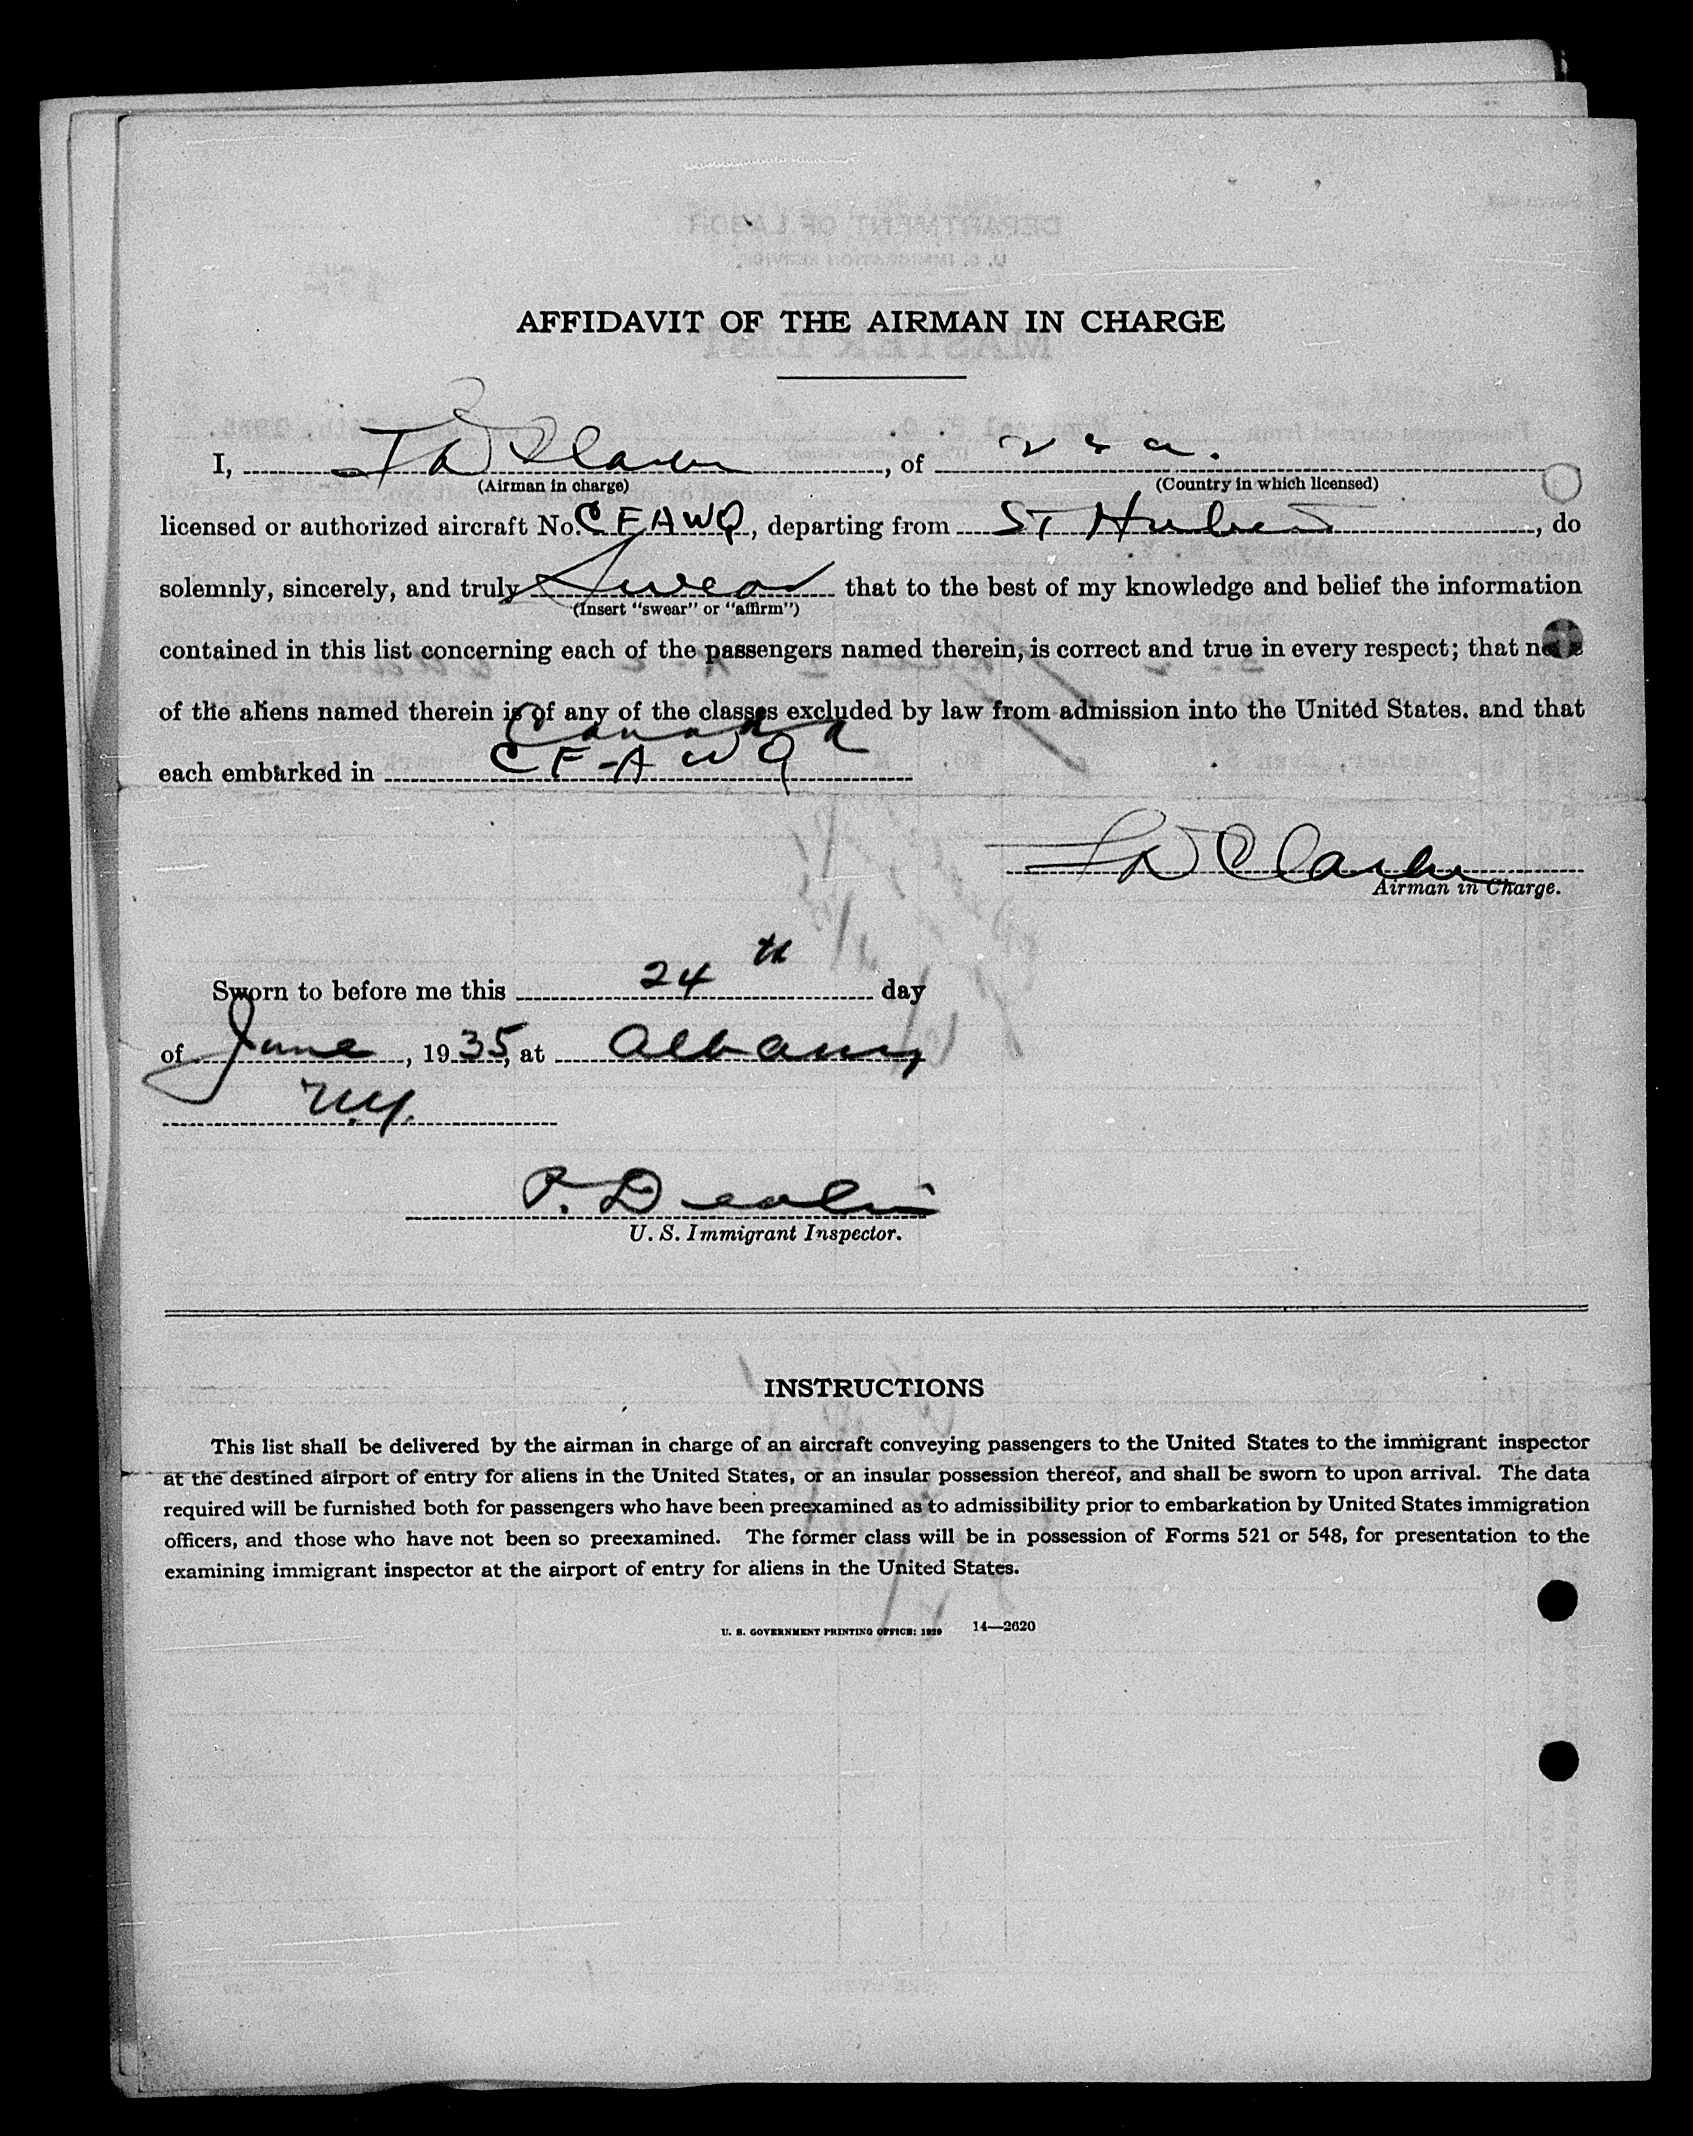 AFFIDAVIT OF THE AIRMAN IN CHARGE
I, Clarke, of U S A.
(Airman in charge) (Country in which licensed)
licensed or authorized aircraft No. CFAWQ, departing from St Hubert, do
solemnly, sincerely, and truly Swear that to the best of my knowledge and belief the information
(Insert "swear" or "affirm")
contained in this list concerning each of the passengers named therein, is correct and true in every respect; that none
of the aliens named therein is of any of the classes excluded by law from admission into the United States. and that
Canada
each embarked in CF-AWQ
Clarke
Airman in Charge.
Sworn to before me this 24th day
of June, 1935, at Albany
N.Y.
U. S. Immigrant Inspector.
INSTRUCTIONS
This list shall be delivered by the airman in charge of an aircraft conveying passengers to the United States to the immigrant inspector
at the destined airport of entry for aliens in the United States, or an insular possession thereof, and shall be sworn to upon arrival. The data
required will be furnished both for passengers who have been preexamined as to admissibility prior to embarkation by United States immigration
officers, and those who have not been so preexamined. The former class will be in possession of Forms 521 or 548, for presentation to the
examining immigrant inspector at the airport of entry for aliens in the United States.
U. S. GOVERNMENT PRINTING OFFICE: 1929 14—2620